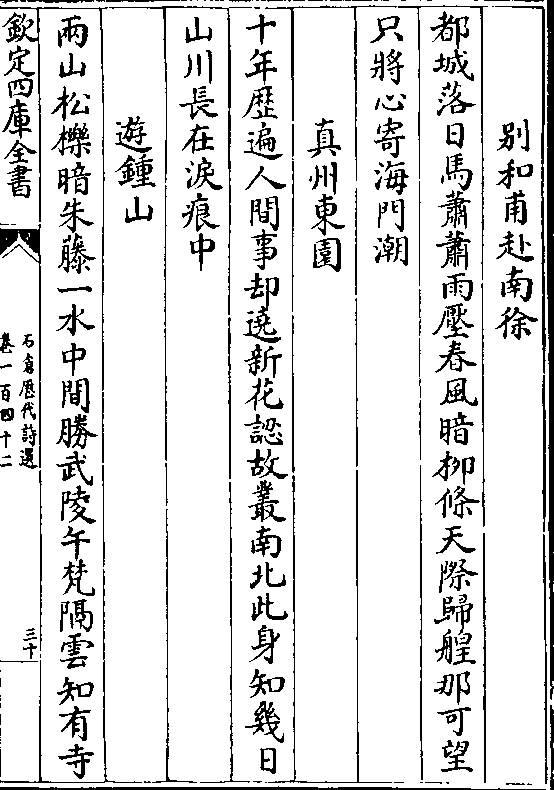 別和甫赴南徐
都城落日馬蕭蕭雨壓春風暗柳條天際歸艎那可望
只將心寄海門潮
真州東園
十年歴遍人間事却遶新花認故叢南北此身知幾日
山川長在淚痕中
遊鍾山
兩山松櫟暗朱藤一水中間勝武陵午梵隔雲知有寺
欽定四庫全書
石倉歴代詩選
卷一百四十二
三十